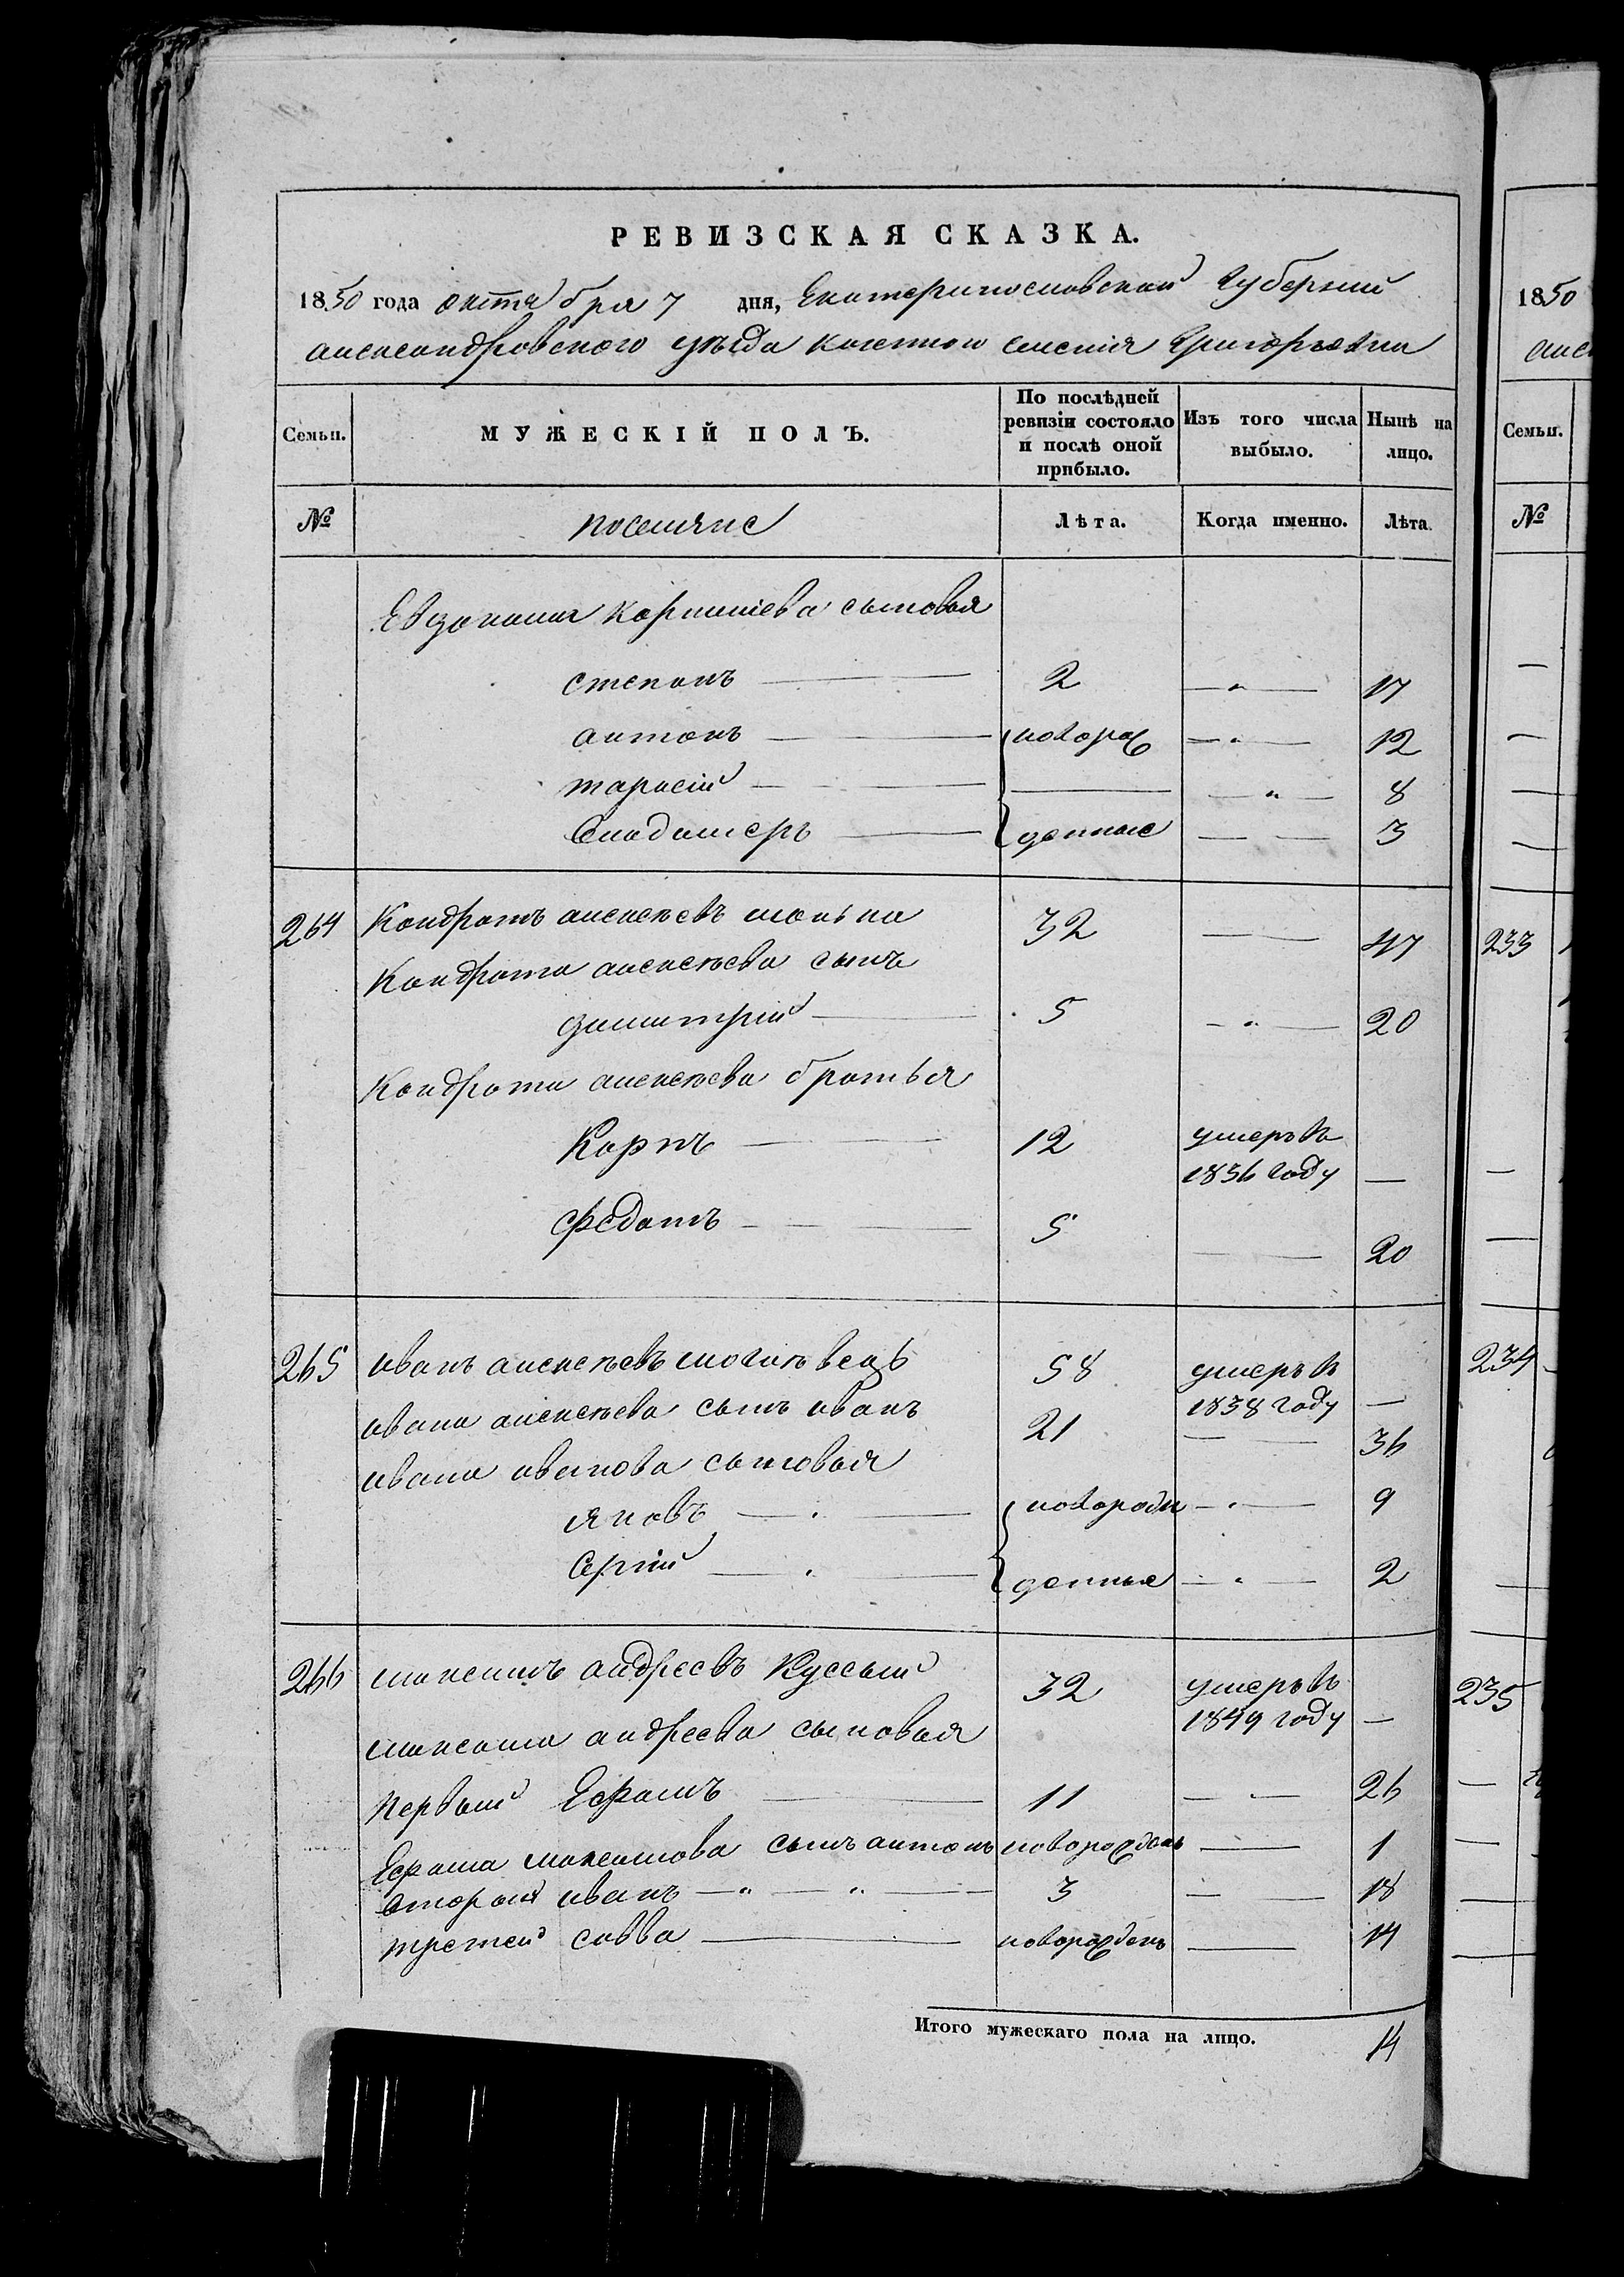 РЕВИЗСКАЯ СКАЗКА.
1850 года октября 7 дня, Екатеринославской Губернии
александровского уезда казенного селения Григорьевки
Семьи. МУЖЕСКІЙ ПОЛЪ. По послѣдней ревизіи состояло и послѣ оной прибыло. Изъ того числа выбыло. Нынѣ на лицо.
№ поселяне Лѣта. Когда именно. Лѣта.
Евдокима Корнилиева сыновья
степанъ 2 — „ — 17
антонъ новорож — „ — 12
тарасій — — „ — 8
Владимеръ денные — — 3
264 Кондратъ алексѣевъ 32 — — 47
Кондрата алексѣева сынъ
димитрій 5 — „ — 20
Кондрата алексѣева братья
Карпъ 12 умеръ въ
1836 году —
Федотъ 5 — 20
265 иванъ алексѣевъ 58 умеръ въ
1838 году —
ивана алексѣева сынъ иванъ 21 — — 36
ивана иванова сыновья
яковъ новорож — „ — 9
Сергій денные — „ — 2
266 максимъ андреевъ Куссый 32 умеръ въ
1849 году —
максима андреева сыновья
Первый Ефимъ 11 — — 26
Ефима максимова сынъ антонъ новорожденъ — 1
второй иванъ — „ — „ — 3 — — 18
третей савва новорожденъ — 14
Итого мужескаго пола на лицо. 14
1850
Семьи.
№
233
234
235